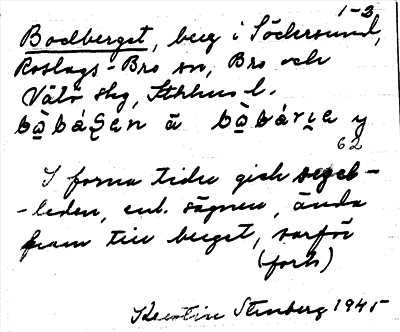 1-3
Bodberget, berg i Södersund,
Roslags-Bro sn, Bro och
Vätö skg, Sthlms l.
å y
62
I forna tider gick segel-
-leden, enl. sägnen, ända
fram till berget, varför
(forts)
Kerstin Stenberg 1945